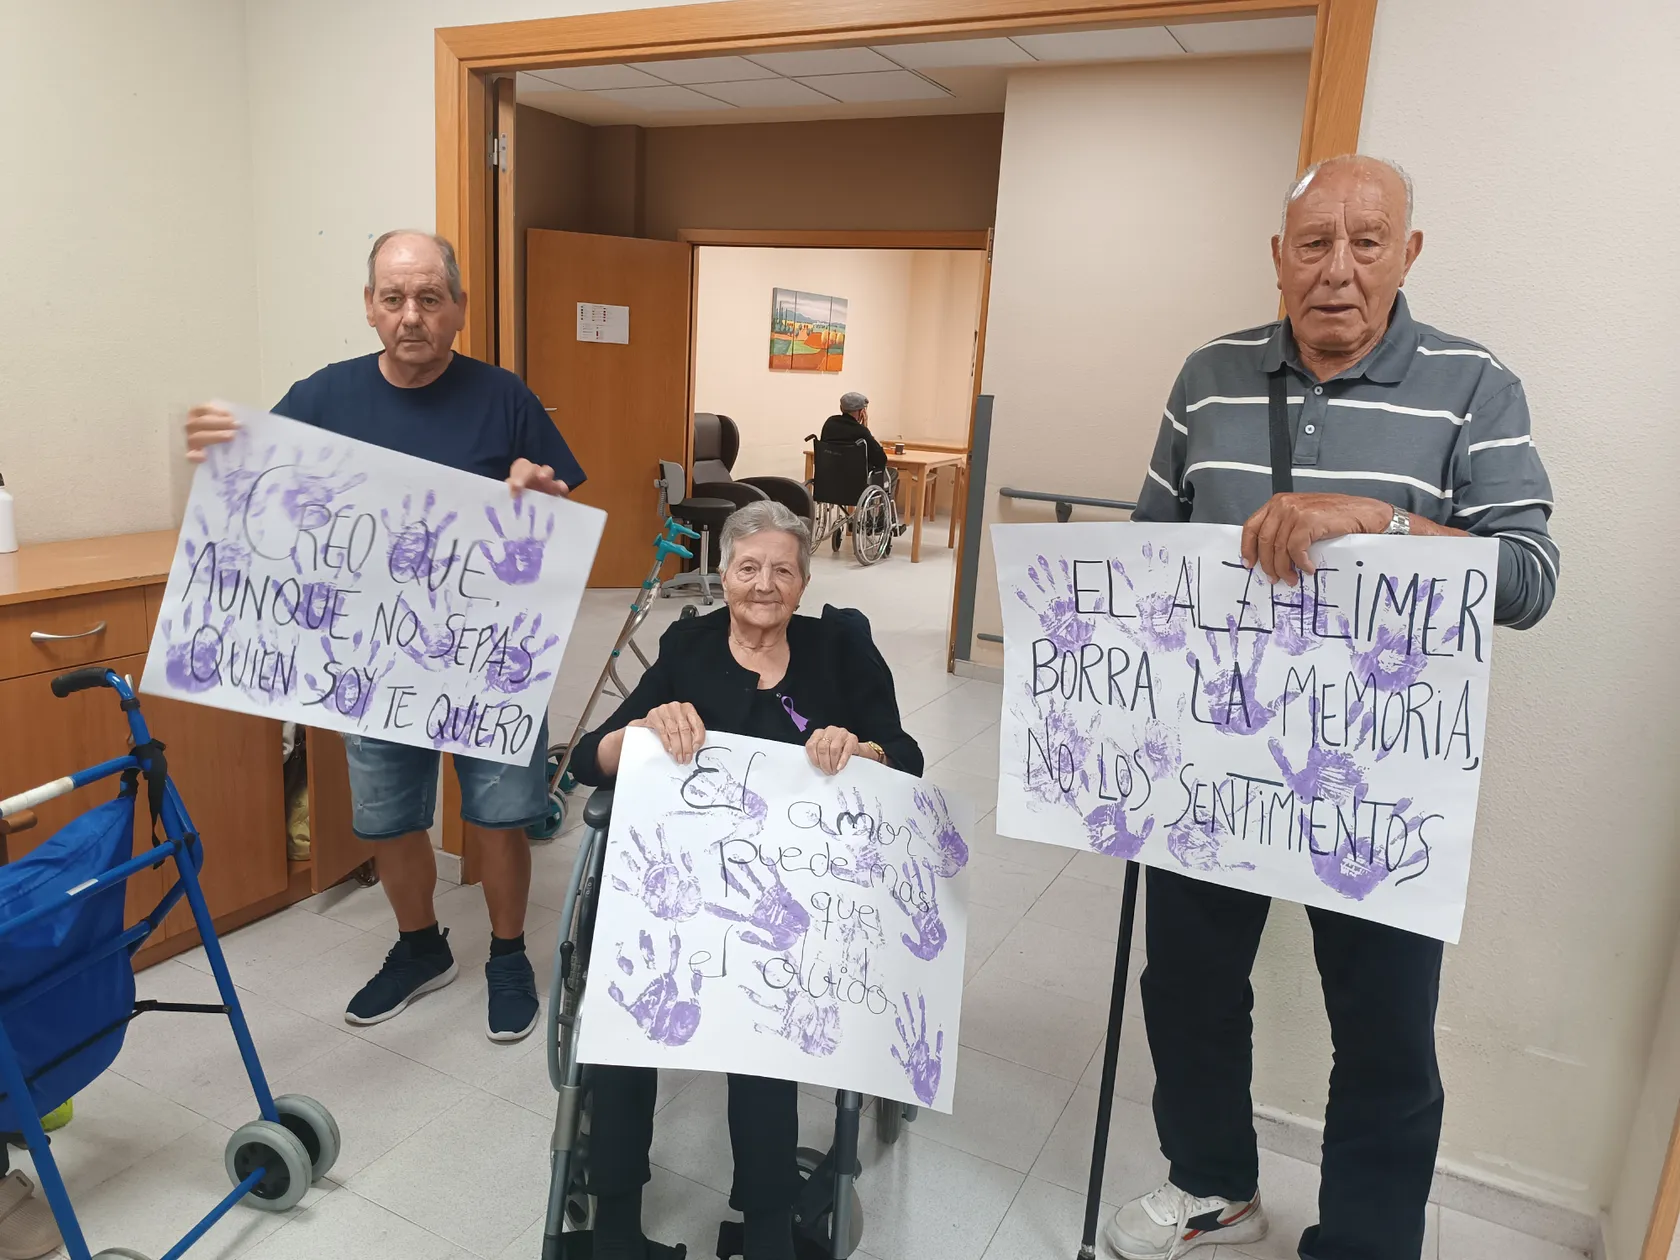 CREO QUE,
AUNQUE NO SEPAS
QUIEN SOY, TE QUIERO
El amor
puede mas
que
el olvido
EL ALZHEIMER
BORRA LA MEMORIA,
NO LOS SENTIMIENTOS